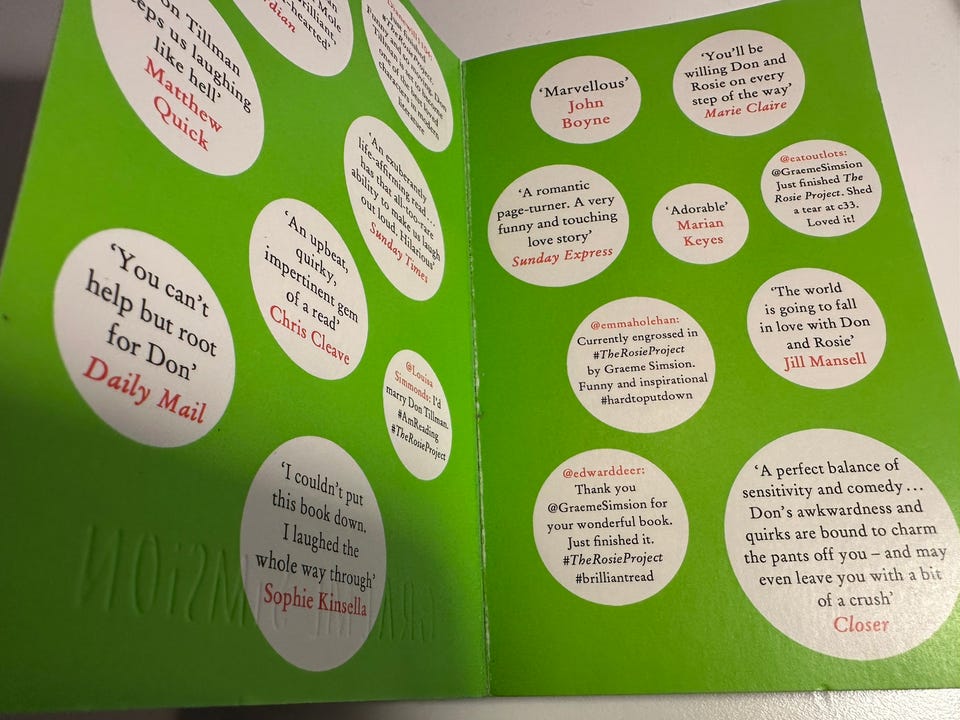 on Tillman
eps us laughing
like hell'
Matthew
Quick
Mole
brilliant
-hearted'
rdian
#TheRosieProject.
Funny and so moving. Don
Tillman is set to become
one of the best loved
characters in modern
literature
'An exuberantly
life-affirming read ...
has that all-too-rare
ability to make us laugh
out loud. Hilarious'
Sunday Times
'An upbeat,
quirky,
impertinent gem
of a read'
Chris Cleave
'You can't
help but root
for Don'
Daily Mail
@Louisa
Simmonds: I'd
marry Don Tillman.
#AmReading
#TheRosieProject
'I couldn't put
this book down.
I laughed the
whole way through'
Sophie Kinsella
GRAEME SIMSION
'Marvellous'
John
Boyne
'You'll be
willing Don and
Rosie on every
step of the way'
Marie Claire
'A romantic
page-turner. A very
funny and touching
love story'
Sunday Express
'Adorable'
Marian
Keyes
@eatoutlots:
@GraemeSimsion
Just finished The
Rosie Project. Shed
a tear at c33.
Loved it!
@emmaholehan:
Currently engrossed in
#TheRosieProject
by Graeme Simsion.
Funny and inspirational
#hardtoputdown
'The world
is going to fall
in love with Don
and Rosie'
Jill Mansell
@edwarddeer:
Thank you
@GraemeSimsion for
your wonderful book.
Just finished it.
#TheRosieProject
#brilliantread
'A perfect balance of
sensitivity and comedy ...
Don's awkwardness and
quirks are bound to charm
the pants off you – and may
even leave you with a bit
of a crush'
Closer